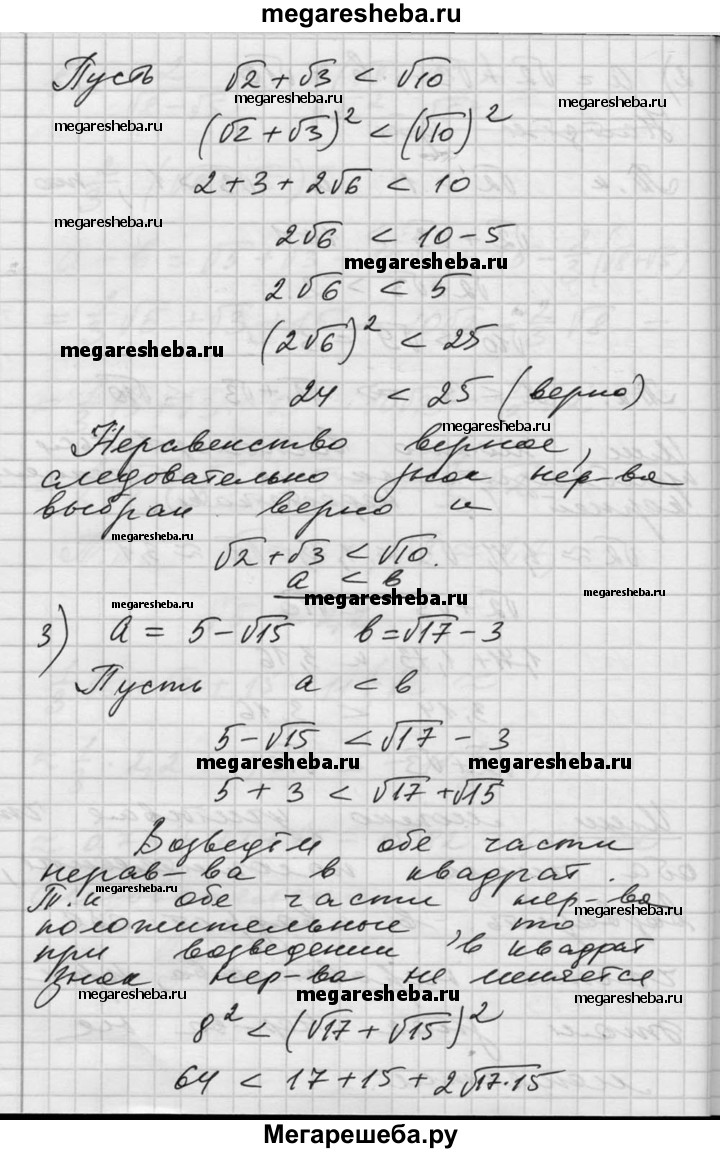 megaresheba.ru
Пусть √2 + √3 < √10
megaresheba.ru megaresheba.ru
megaresheba.ru (√2 + √3)² < (√10)²
2 + 3 + 2√6 < 10
megaresheba.ru
2√6 < 10 - 5
megaresheba.ru
2√6 < 5
megaresheba.ru (2√6)² < 25
24 < 25 (верно)
megaresheba.ru
Неравенство верное,
следовательно знак нер-ва
выбран верно и
megaresheba.ru
√2 + √3 < √10.
a < в
megaresheba.ru megaresheba.ru megaresheba.ru
3) a = 5 - √15 в = √17 - 3
Пусть a < в
5 - √15 < √17 - 3
megaresheba.ru megaresheba.ru
5 + 3 < √17 + √15
Возведём обе части
нерав-ва в квадрат.
megaresheba.ru
Т.к обе части нер-ва
megaresheba.ru
положительные, то
при возведении в квадрат
знак нер-ва не меняется
megaresheba.ru megaresheba.ru megaresheba.ru
8² < (√17 + √15)²
64 < 17 + 15 + 2√17·15
Мегарешеба.ру